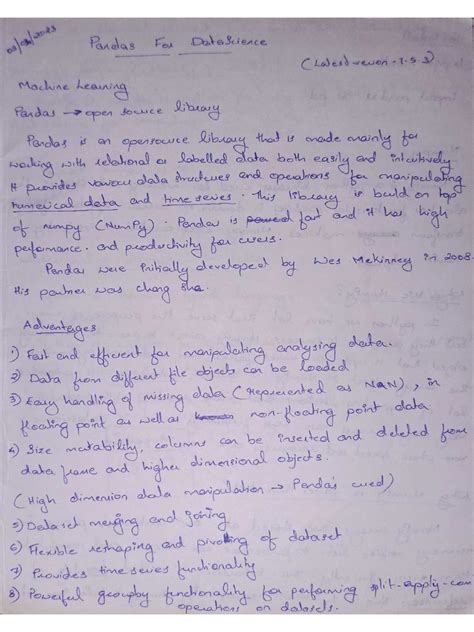 Pandas For DataScience
(Latest version - 1.5.3)
Machine Learning
Pandas → open source library
Pandas is an opensource library that is made mainly for
working with relational or labelled data both easily and intuitively
It provides various data structures and operations for manipulating
numerical data and time series. This library is build on top
of numpy (NumPy). Pandas is fast and it has high
performance and productivity for users.
Pandas were initially developed by Wes Mckinney in 2008.
His partner was chang sha.
Advantages
1) Fast and efficient for manipulating analysing data.
2) Data from different file objects can be loaded
3) Easy handling of missing data (represented as NaN), in
floating point as well as non-floating point data.
4) Size mutability, columns can be inserted and deleted from
data frame and higher dimensional objects.
(High dimension data manipulation → Panda's used)
5) Dataset merging and joining
6) Flexible reshaping and pivoting of dataset
7) Provides time series functionality
8) Powerful groupby functionality for performing split-apply-com
operations on datasets.